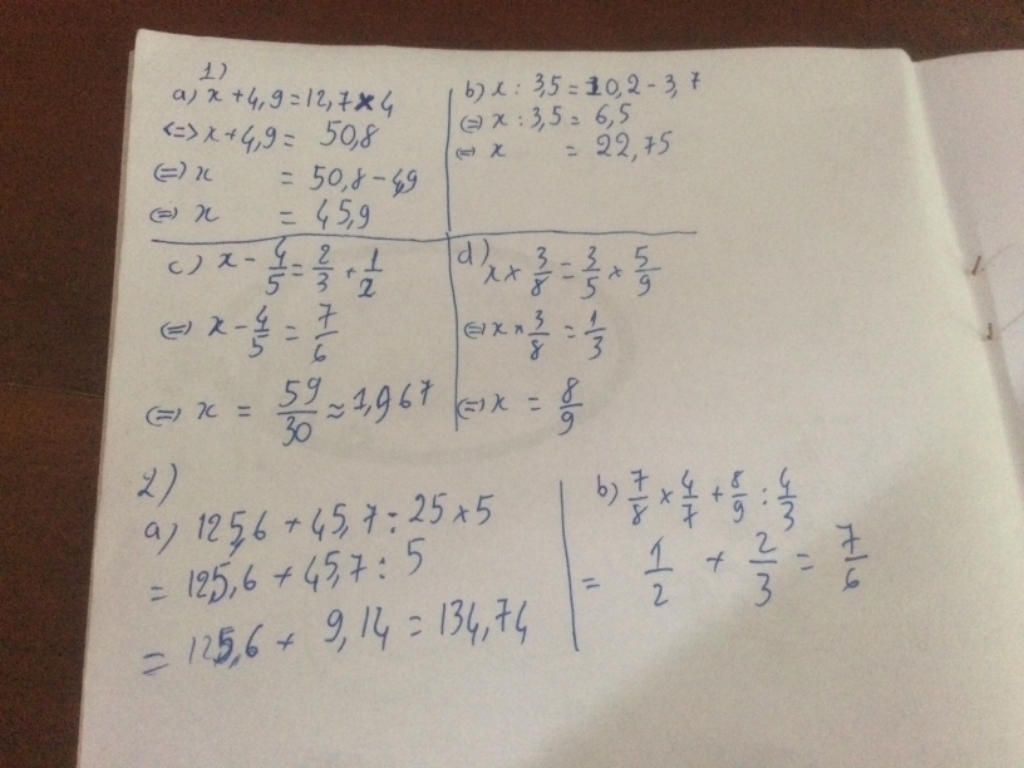 1)
a) x + 4,9 = 12,7 x 4
<=> x + 4,9 = 50,8
<=> x = 50,8 - 4,9
<=> x = 45,9
b) x : 3,5 = 10,2 - 3,7
<=> x : 3,5 = 6,5
<=> x = 22,75
c) x - 4/5 = 2/3 + 1/2
<=> x - 4/5 = 7/6
<=> x = 59/30 ≈ 1,967
d) x × 3/8 = 3/5 × 5/9
<=> x × 3/8 = 1/3
<=> x = 8/9
2)
a) 125,6 + 45,7 : 25 × 5
= 125,6 + 45,7 : 5
= 125,6 + 9,14 = 134,74
b) 7/8 × 4/7 + 8/9 : 4/3
= 1/2 + 2/3 = 7/6